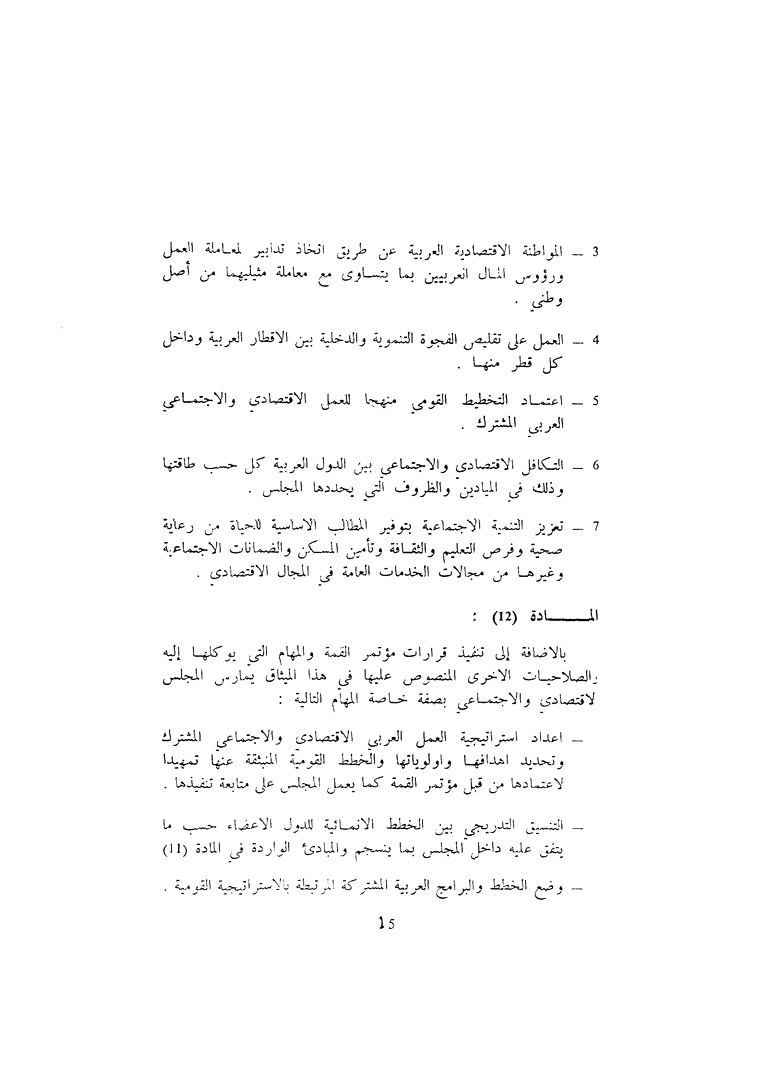 3 — المواطنة الاقتصادية العربية عن طريق اتخاذ تدابير لمعاملة العمل
ورؤوس المال العربيين بما يتساوى مع معاملة مثيليهما من أصل
وطني .
4 — العمل على تقليص الفجوة التنموية والدخلية بين الاقطار العربية وداخل
كل قطر منها .
5 — اعتماد التخطيط القومي منهجا للعمل الاقتصادي والاجتماعي
العربي المشترك .
6 — التكافل الاقتصادي والاجتماعي بين الدول العربية كل حسب طاقتها
وذلك في الميادين والظروف التي يحددها المجلس .
7 — تعزيز التنمية الاجتماعية بتوفير المطالب الاساسية للحياة من رعاية
صحية وفرص التعليم والثقافة وتأمين المسكن والضمانات الاجتماعية
وغيرها من مجالات الخدمات العامة في المجال الاقتصادي .
المـــــادة (12) :
بالاضافة إلى تنفيذ قرارات مؤتمر القمة والمهام التي يوكلها إليه
والصلاحيات الاخرى المنصوص عليها في هذا الميثاق يمارس المجلس
لاقتصادي والاجتماعي بصفة خاصة المهام التالية :
— اعداد استراتيجية العمل العربي الاقتصادي والاجتماعي المشترك
وتحديد اهدافها واولوياتها والخطط القومية المنبثقة عنها تمهيدا
لاعتمادها من قبل مؤتمر القمة كما يعمل المجلس على متابعة تنفيذها .
— التنسيق التدريجي بين الخطط الانمائية للدول الاعضاء حسب ما
يتفق عليه داخل المجلس بما ينسجم والمبادئ الواردة في المادة (11)
— وضع الخطط والبرامج العربية المشتركة المرتبطة بالاستراتيجية القومية .
15